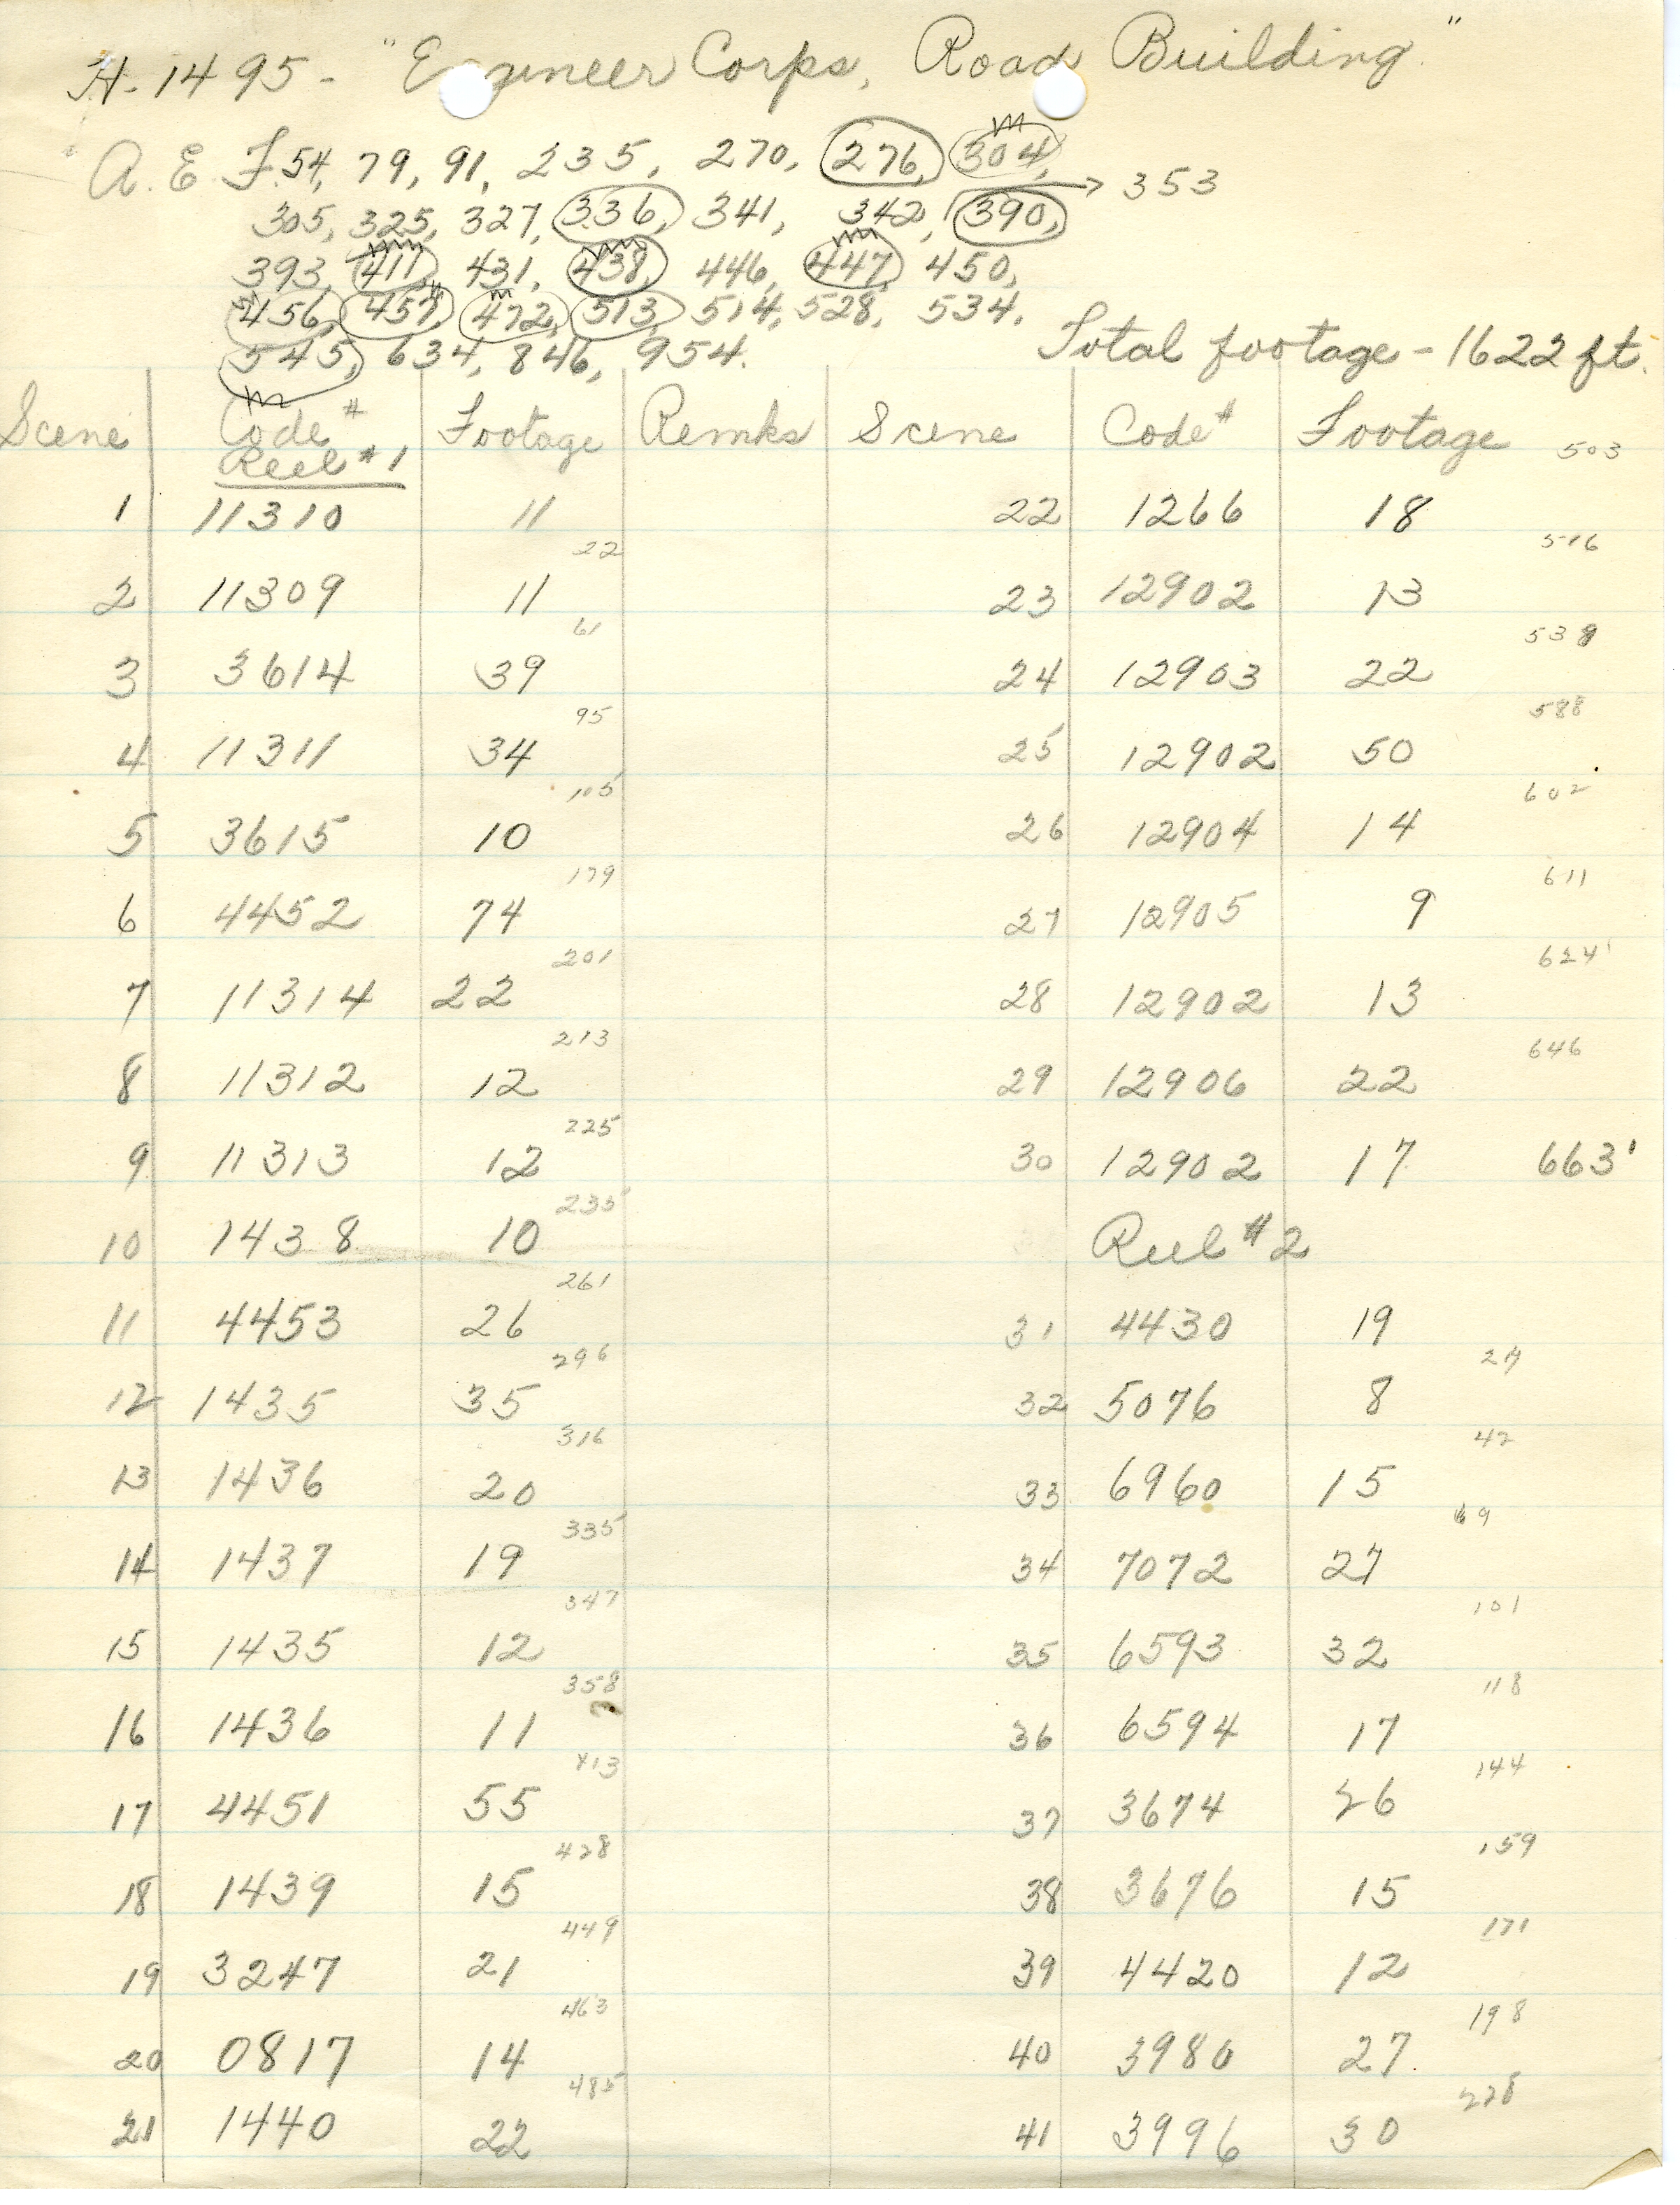 H-1495- "Engineer Corps, Road Building"
A. E. F. 54, 79, 91, 235, 270, 276, 304, → 353
305, 325, 327, 336, 341, 342, 390,
393, 411, 431, 438, 446, 447, 450,
456, 457, 472, 513, 514, 528, 534.
545, 634, 846, 954.
Total footage - 1622 ft.
Scene Code # Footage Remks Scene Code # Footage 503
Reel #1
1 11310 11 22 1266 18
22 516
2 11309 11 23 12902 13
61 538
3 3614 39 24 12903 22
95 588
4 11311 34 25 12902 50
105 602
5 3615 10 26 12904 14
179 611
6 4452 74 27 12905 9
201 624'
7 11314 22 28 12902 13
213 646
8 11312 12 29 12906 22
225
9 11313 12 30 12902 17 663'
235
10 1438 10 Reel #2
261
11 4453 26 31 4430 19
296 27
12 1435 35 32 5076 8
316 42
13 1436 20 33 6960 15
335 69
14 1437 19 34 7072 27
347 101
15 1435 12 35 6593 32
358 118
16 1436 11 36 6594 17
413 144
17 4451 55 37 3674 26
428 159
18 1439 15 38 3676 15
449 171
19 3247 21 39 4420 12
463 198
20 0817 14 40 3980 27
485 228
21 1440 22 41 3996 30